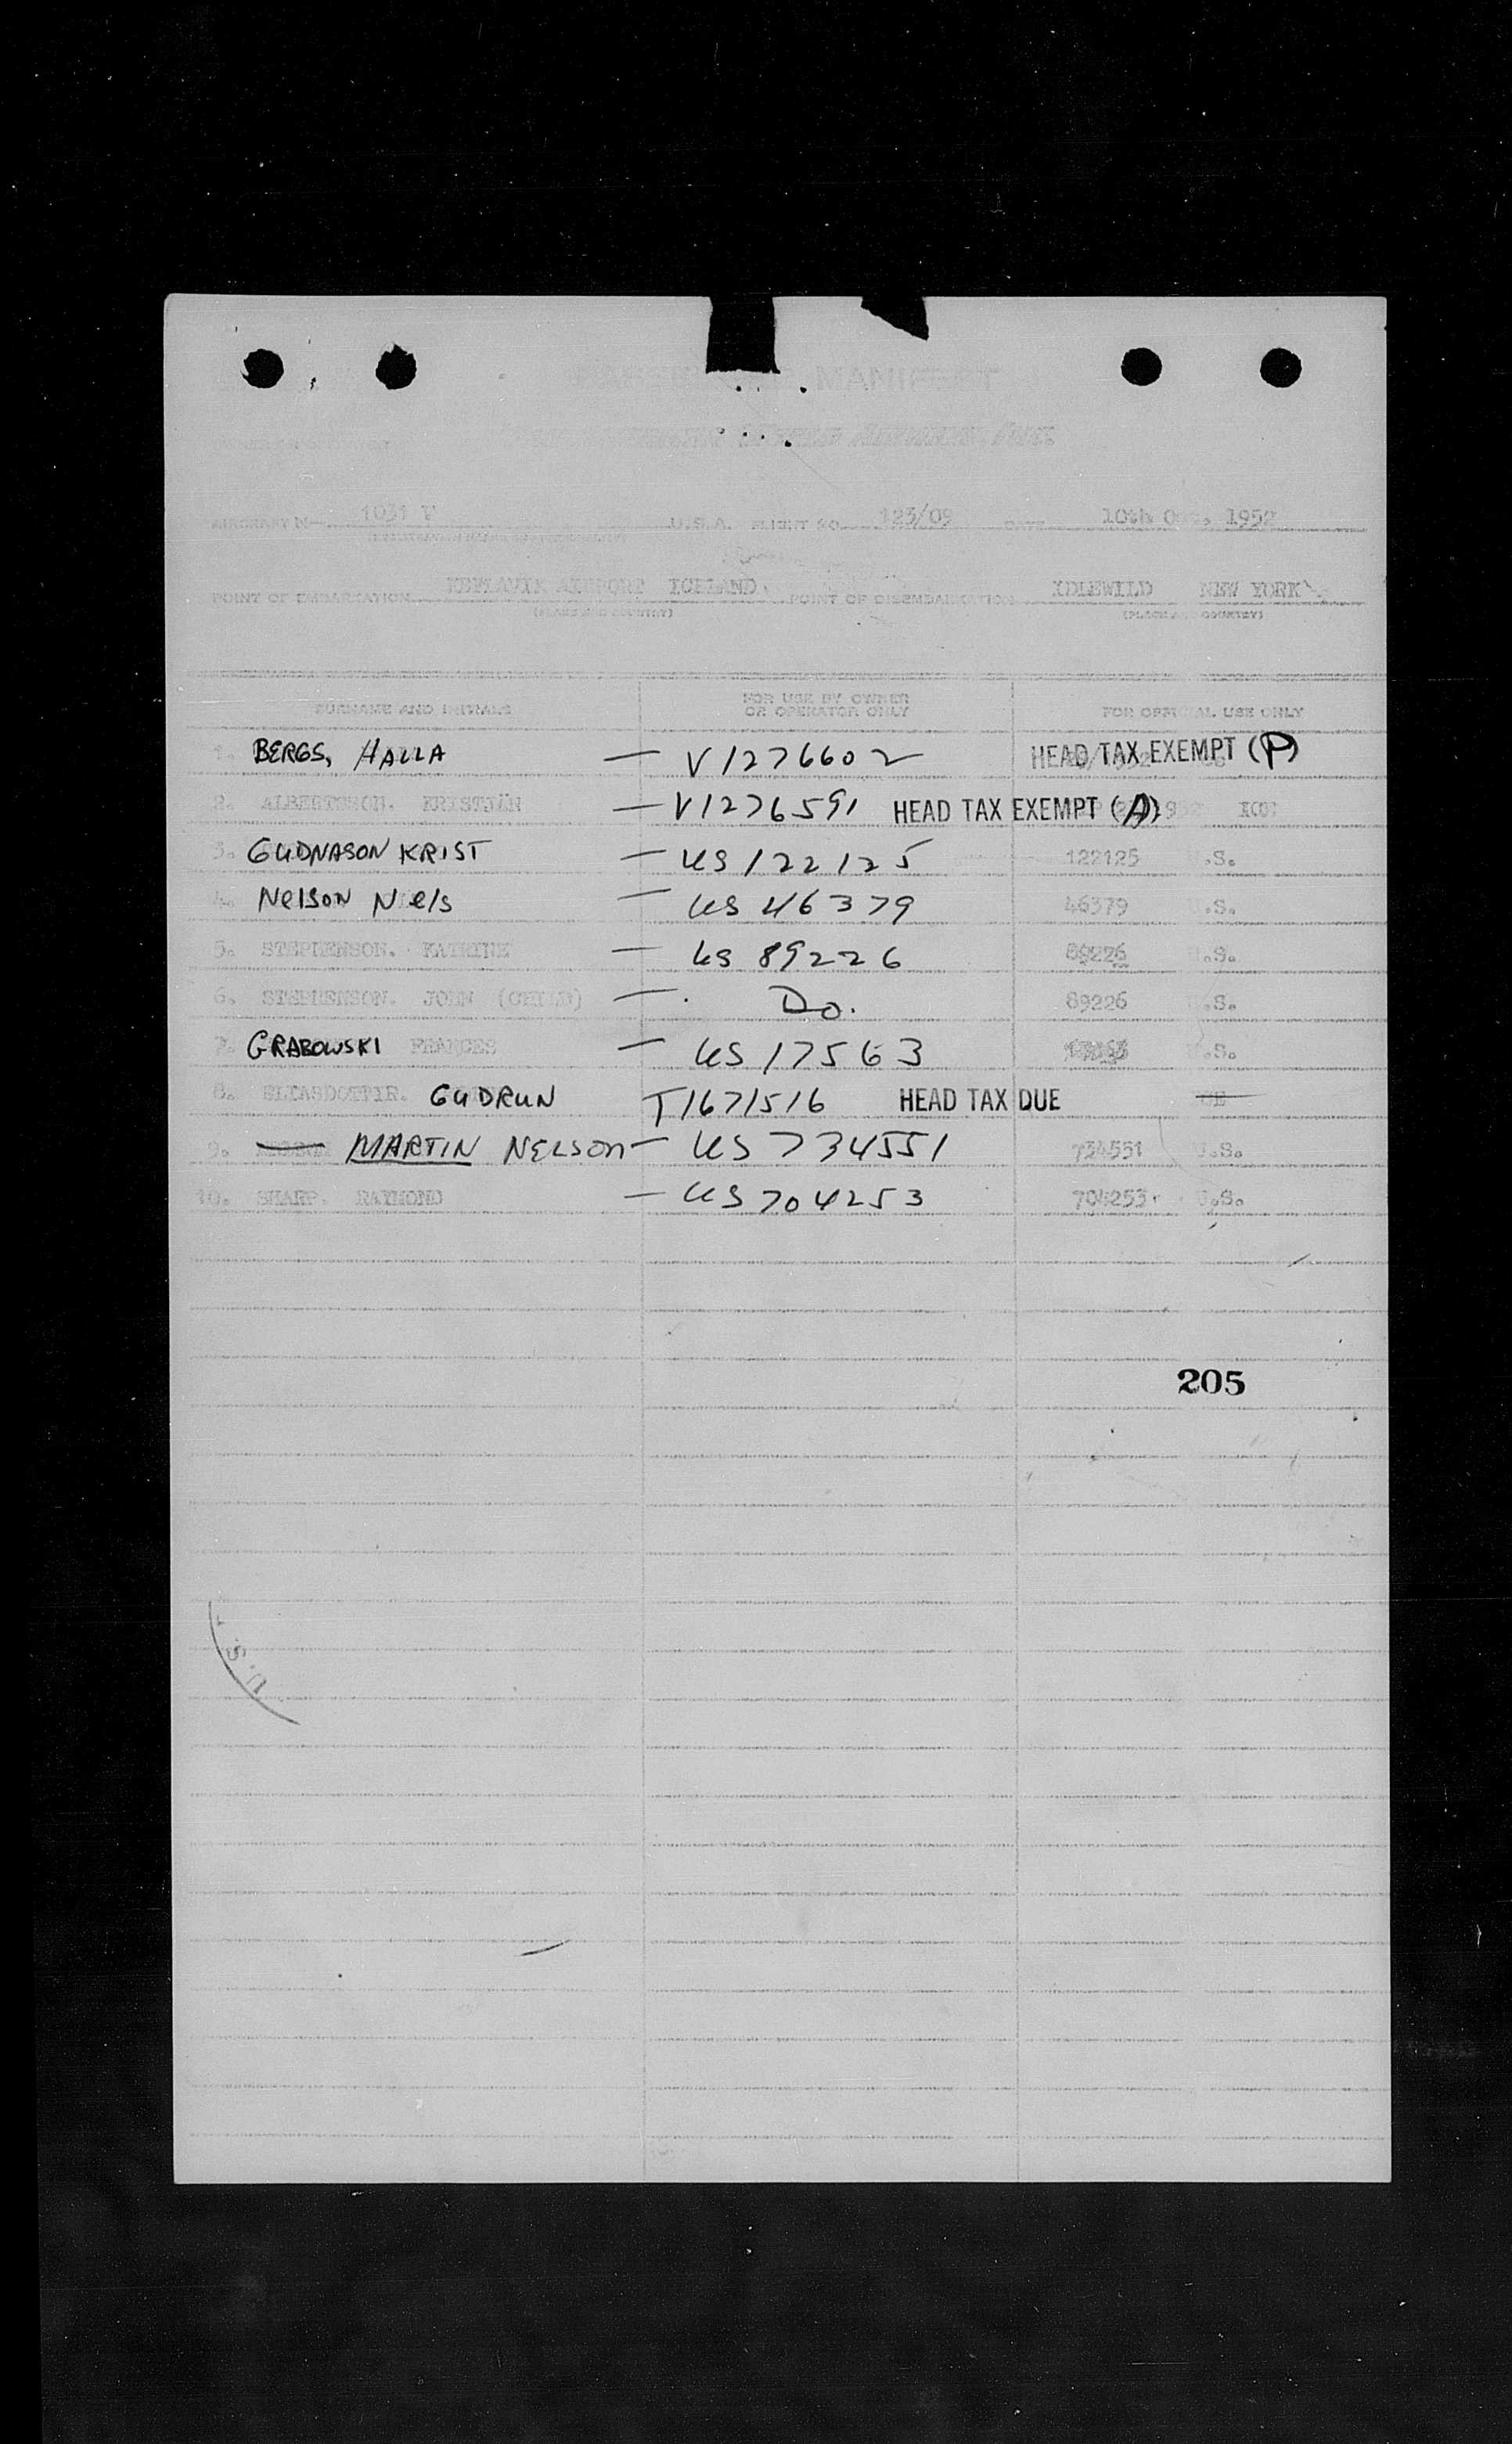 PASSENGER MANIFEST
AIRCRAFT N— 1031 V U.S.A. FLIGHT NO. 123/09 DATE 10th Oct, 1952
POINT OF EMBARKATION KEFLAVIK AIRPORT ICELAND. POINT OF DISEMBARKATION IDLEWILD NEW YORK
(PLACE AND COUNTRY) (PLACE AND COUNTRY)
SURNAME AND INITIALS FOR USE BY OWNER OR OPERATOR ONLY FOR OFFICIAL USE ONLY
1. BERGS, HALLA — V1276602 HEAD TAX EXEMPT (P)
2. ALBERTSSON. KRISTJÁN — V1276591 HEAD TAX EXEMPT (A) ICE
3. GUDNASON KRIST — US 122125 122125 U.S.
4. Nelson Nels — US 46379 46379 U.S.
5. STEPHENSON. KATRINE — US 89226 89226 U.S.
6. STEPHENSON. JOHN (CHILD) — Do. 89226 U.S.
7. GRABOWSKI FRANCES — US 17563 U.S.
8. ELIASDOTTIR. GUDRUN T1671516 HEAD TAX DUE
9. MARTIN NELSON — US 734551 734551 U.S.
10. SHARP. RAYMOND — US 704253 704253 U.S.
205
U.S.